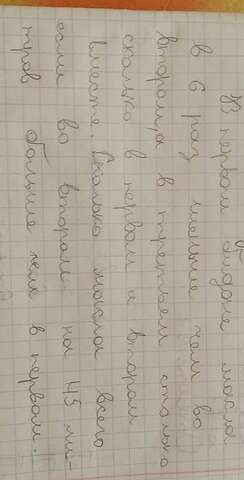 В первом бидоне масла
в 6 раз меньше чем во
втором, а в третьем столько
сколько в первом и втором
вместе. Сколько масла всего
если во втором на 45 ли-
тров больше чем в первом.